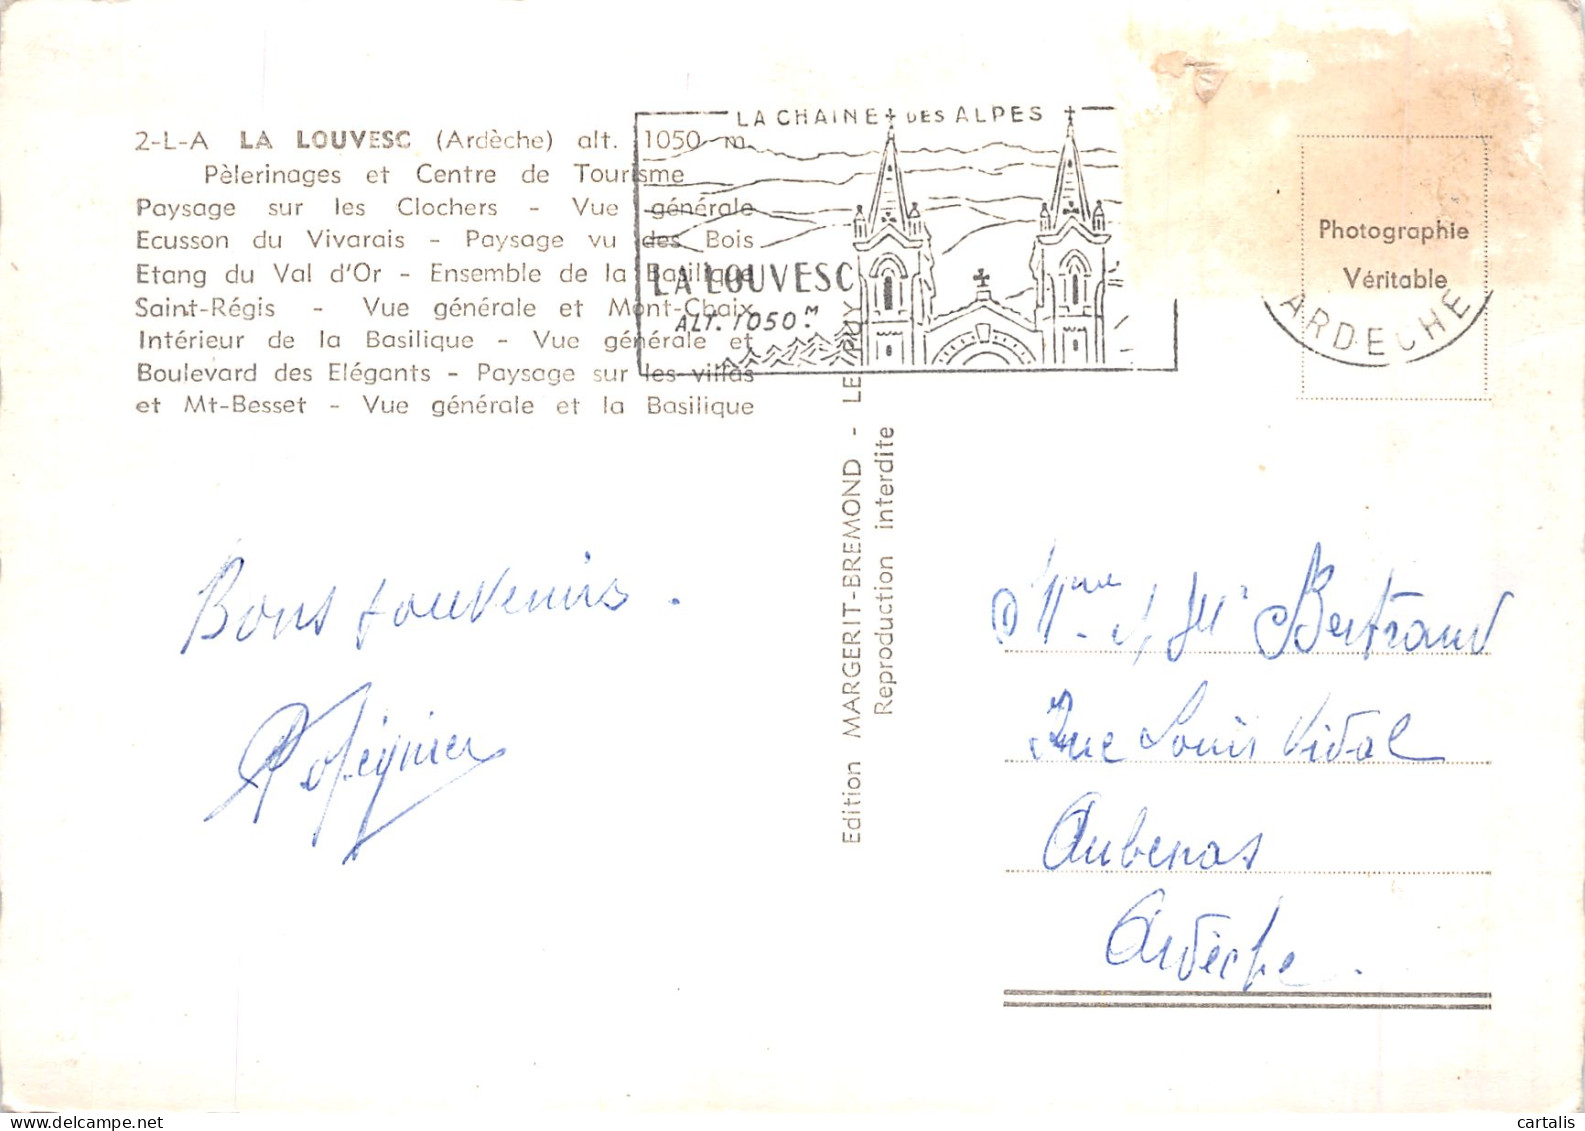 2-L-A LA LOUVESC (Ardèche) alt. 1050 m.
Pèlerinages et Centre de Tourisme
Paysage sur les Clochers - Vue générale
Ecusson du Vivarais - Paysage vu des Bois
Etang du Val d'Or - Ensemble de la Basilique
Saint-Régis - Vue générale et Mont-Chaix
Intérieur de la Basilique - Vue générale et
Boulevard des Elégants - Paysage sur les villas
et Mt-Besset - Vue générale et la Basilique
LA CHAINE DES ALPES
LA LOUVESC
ALT. 1050.M
Photographie
Véritable
ARDECHE
Edition MARGERIT-BREMOND - LE PUY
Reproduction interdite
Bons souvenirs.
Mme Bertrand
Rue Louis Vidal
Aubenas
Ardèche.
cartalis